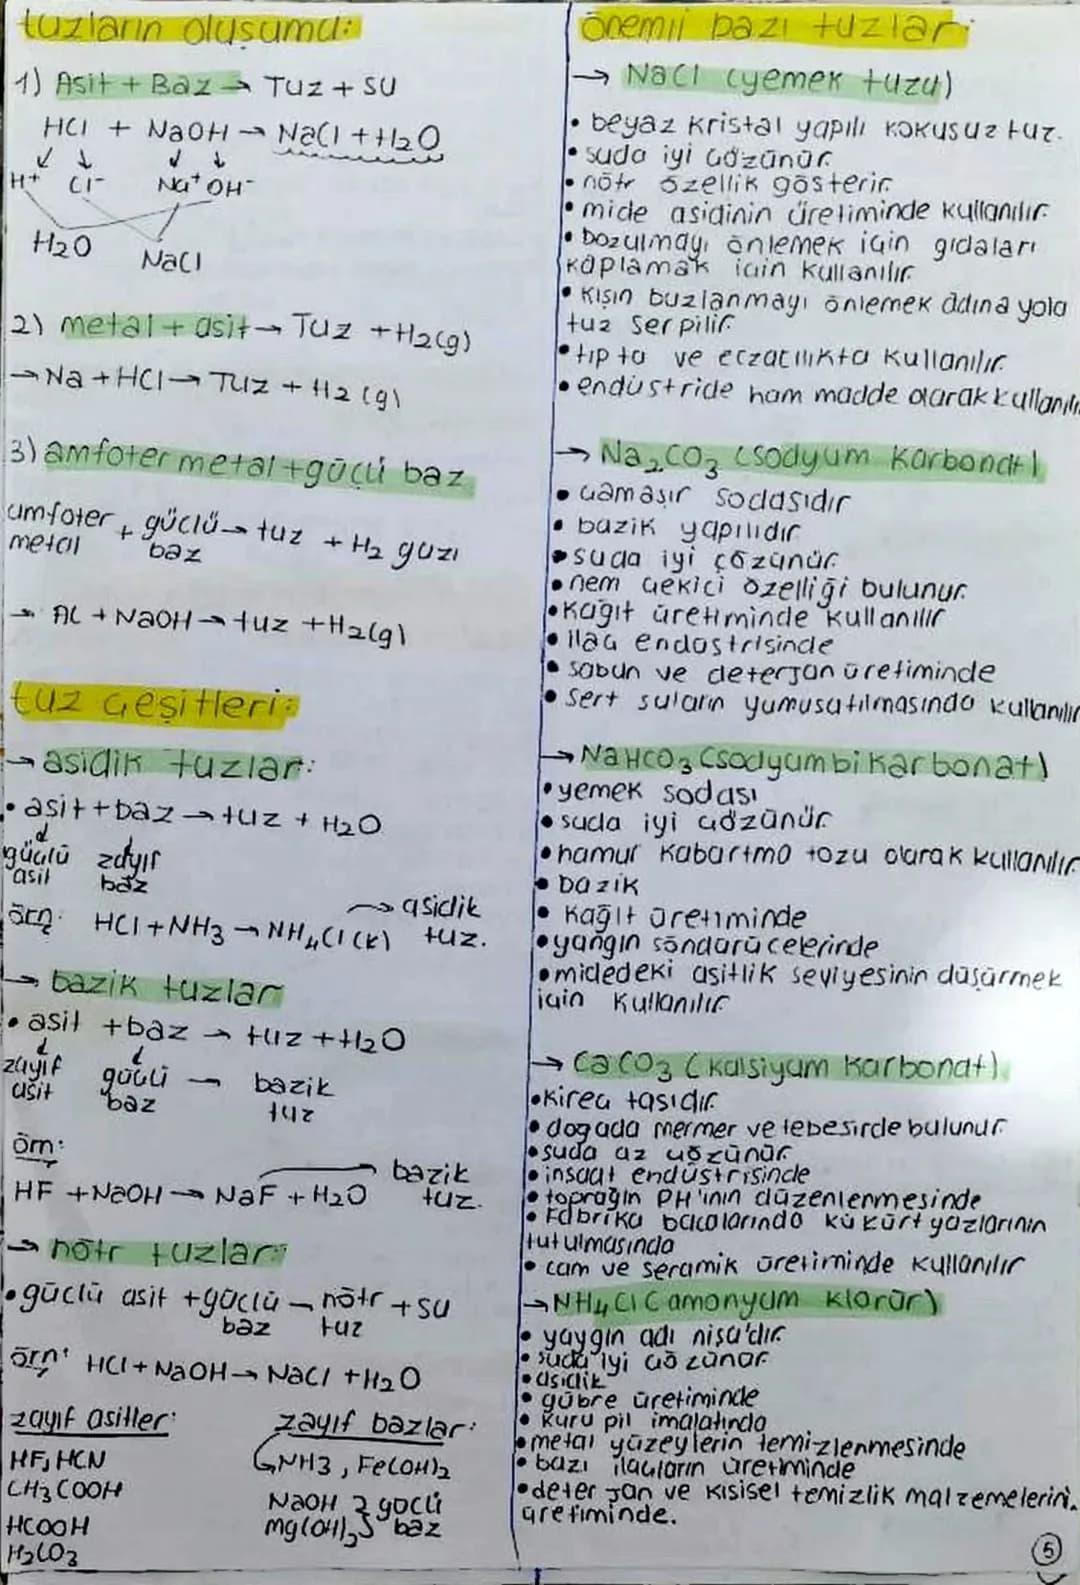 tuzların oluşumu:
1) Asit + Baz → Tuz + su
HCl + NaOH → NaCl + H2O
H+ Cl- Na+ OH-
H2O NaCl
2) metal + asit → Tuz + H2(g)
→ Na + HCl → Tuz + H2 (g)
3) amfoter metal + güçlü baz
amfoter metal + güçlü baz → tuz + H2 gazı
→ AL + NaOH → tuz + H2(g)
tuz çeşitleri:
→ asidik tuzlar:
• asit + baz → tuz + H2O
güçlü asit zayıf baz
örn: HCl + NH3 → NH4Cl (k) → asidik tuz.
→ bazik tuzlar
• asit + baz → tuz + H2O
zayıf asit güçlü baz → bazik tuz
örn:
HF + NaOH → NaF + H2O → bazik tuz.
→ nötr tuzlar:
• güclü asit + güclü baz → nötr tuz + su
örn: HCl + NaOH → NaCl + H2O
zayıf asitler:
HF, HCN
CH3COOH
HCOOH
H2CO3
zayıf bazlar:
NH3, Fe(OH)2
NaOH } güçlü
mg(OH)2 } baz
önemli bazı tuzlar:
→ NaCl (yemek tuzu)
• beyaz kristal yapılı kokusuz tuz.
• suda iyi çözünür.
• nötr özellik gösterir.
• mide asidinin üretiminde kullanılır.
• bozulmayı önlemek için gıdaları
kaplamak için kullanılır.
• kışın buzlanmayı önlemek adına yola
tuz serpilir.
• tıp ta ve eczacılıkta kullanılır.
• endüstride ham madde olarak kullanılır
→ Na2CO3 (sodyum karbonat)
• çamaşır sodasıdır
• bazik yapılıdır.
• suda iyi çözünür.
• nem çekici özelliği bulunur.
• kağıt üretiminde kullanılır
• ilaç endüstrisinde
• sabun ve deterjan üretiminde
• sert suların yumuşatılmasında kullanılır
→ NaHCO3 (sodyum bikarbonat)
• yemek sodası
• suda iyi çözünür.
• hamur kabartma tozu olarak kullanılır.
• bazik
• kağıt üretiminde
• yangın söndürücelerinde
• midedeki asitlik seviyesinin düşürmek
için kullanılır.
→ CaCO3 (kalsiyum karbonat).
• kireç taşıdır.
• doğada mermer ve tebeşirde bulunur.
• suda az çözünür.
• inşaat endüstrisinde
• toprağın PH'ının düzenlenmesinde
• Fabrika bacalarında kükürt yazlarının
tutulmasında
• cam ve seramik üretiminde kullanılır
→ NH4Cl (amonyum klorür)
• yaygın adı nişadır.
• suda iyi çözünür.
• asidik
• gübre üretiminde
• kuru pil imalatında
• metal yüzeylerin temizlenmesinde
• bazı ilaçların üretiminde
• deterjan ve kişisel temizlik malzemelerin.
üretiminde.
5